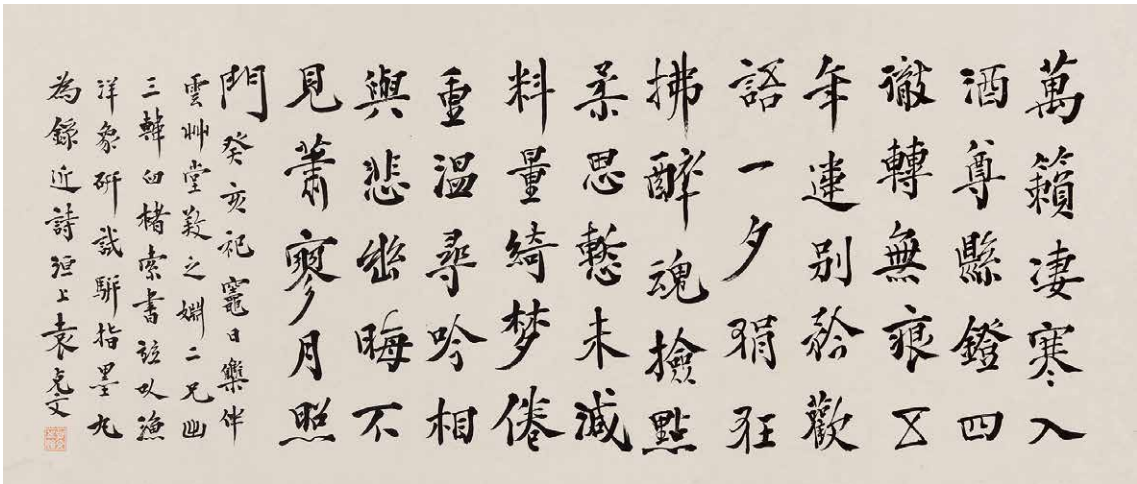 萬籟淒寒入
酒尊縣鐙四
徹轉無痕五
年連别矜歡
語一夕狷狂
拂醉魂撿點
柔思未減
料量綺梦倦
重溫尋吟相
與悲幽晦不
見蕭寥月照
門 癸亥祀竈日樂伴
雲艸堂之二兄出
三韓白楮索書以漁
洋象研試駢指墨九
為錄近詩洹上袁克文